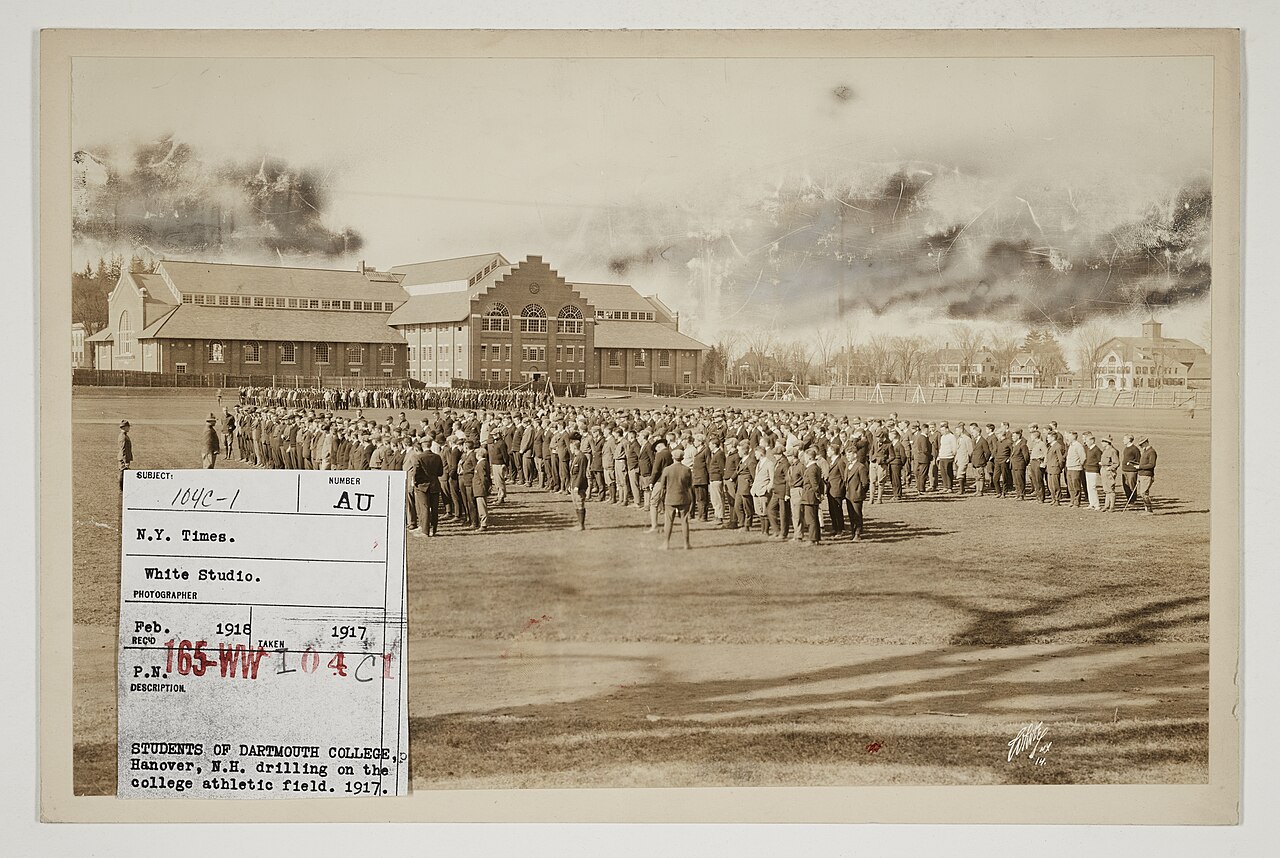 SUBJECT:
104C-1
NUMBER
AU
N.Y. Times.
White Studio.
PHOTOGRAPHER
Feb. 1918
REC'D
TAKEN
1917
P.N. 165-WW 104C1
DESCRIPTION
STUDENTS OF DARTMOUTH COLLEGE,
Hanover, N.H. drilling on the
college athletic field. 1917.
14.